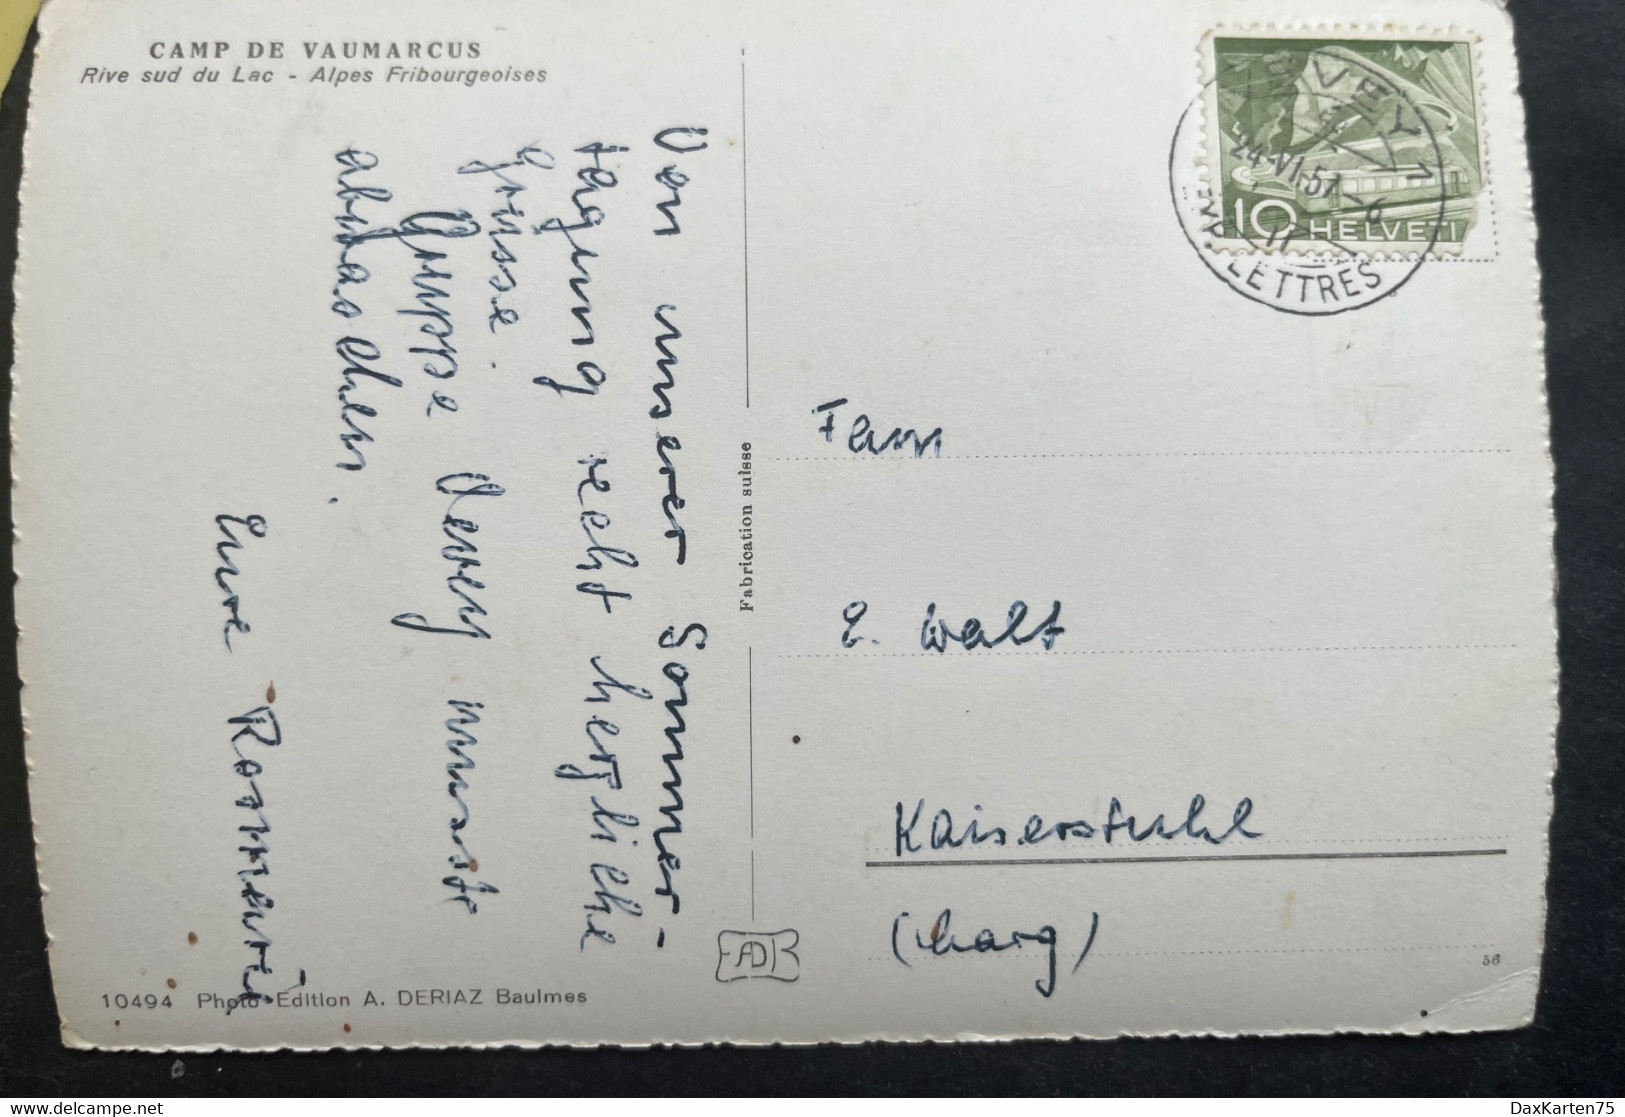 CAMP DE VAUMARCUS
Rive sud du Lac - Alpes Fribourgeoises
Von unserer Sommer-
tagung recht herzliche
Grüsse.
Gruppe Vevey musste
abwaschen.
Eure Rosmarie
Fabrication suisse
VEVEY 1
24.VI.57-6
11
EXP. LETTRES
10 HELVETI
Fam
E. Walt
Kaiserstuhl
(Aarg)
56
10494 Photo Edition A. DERIAZ Baulmes
DaxKarten75